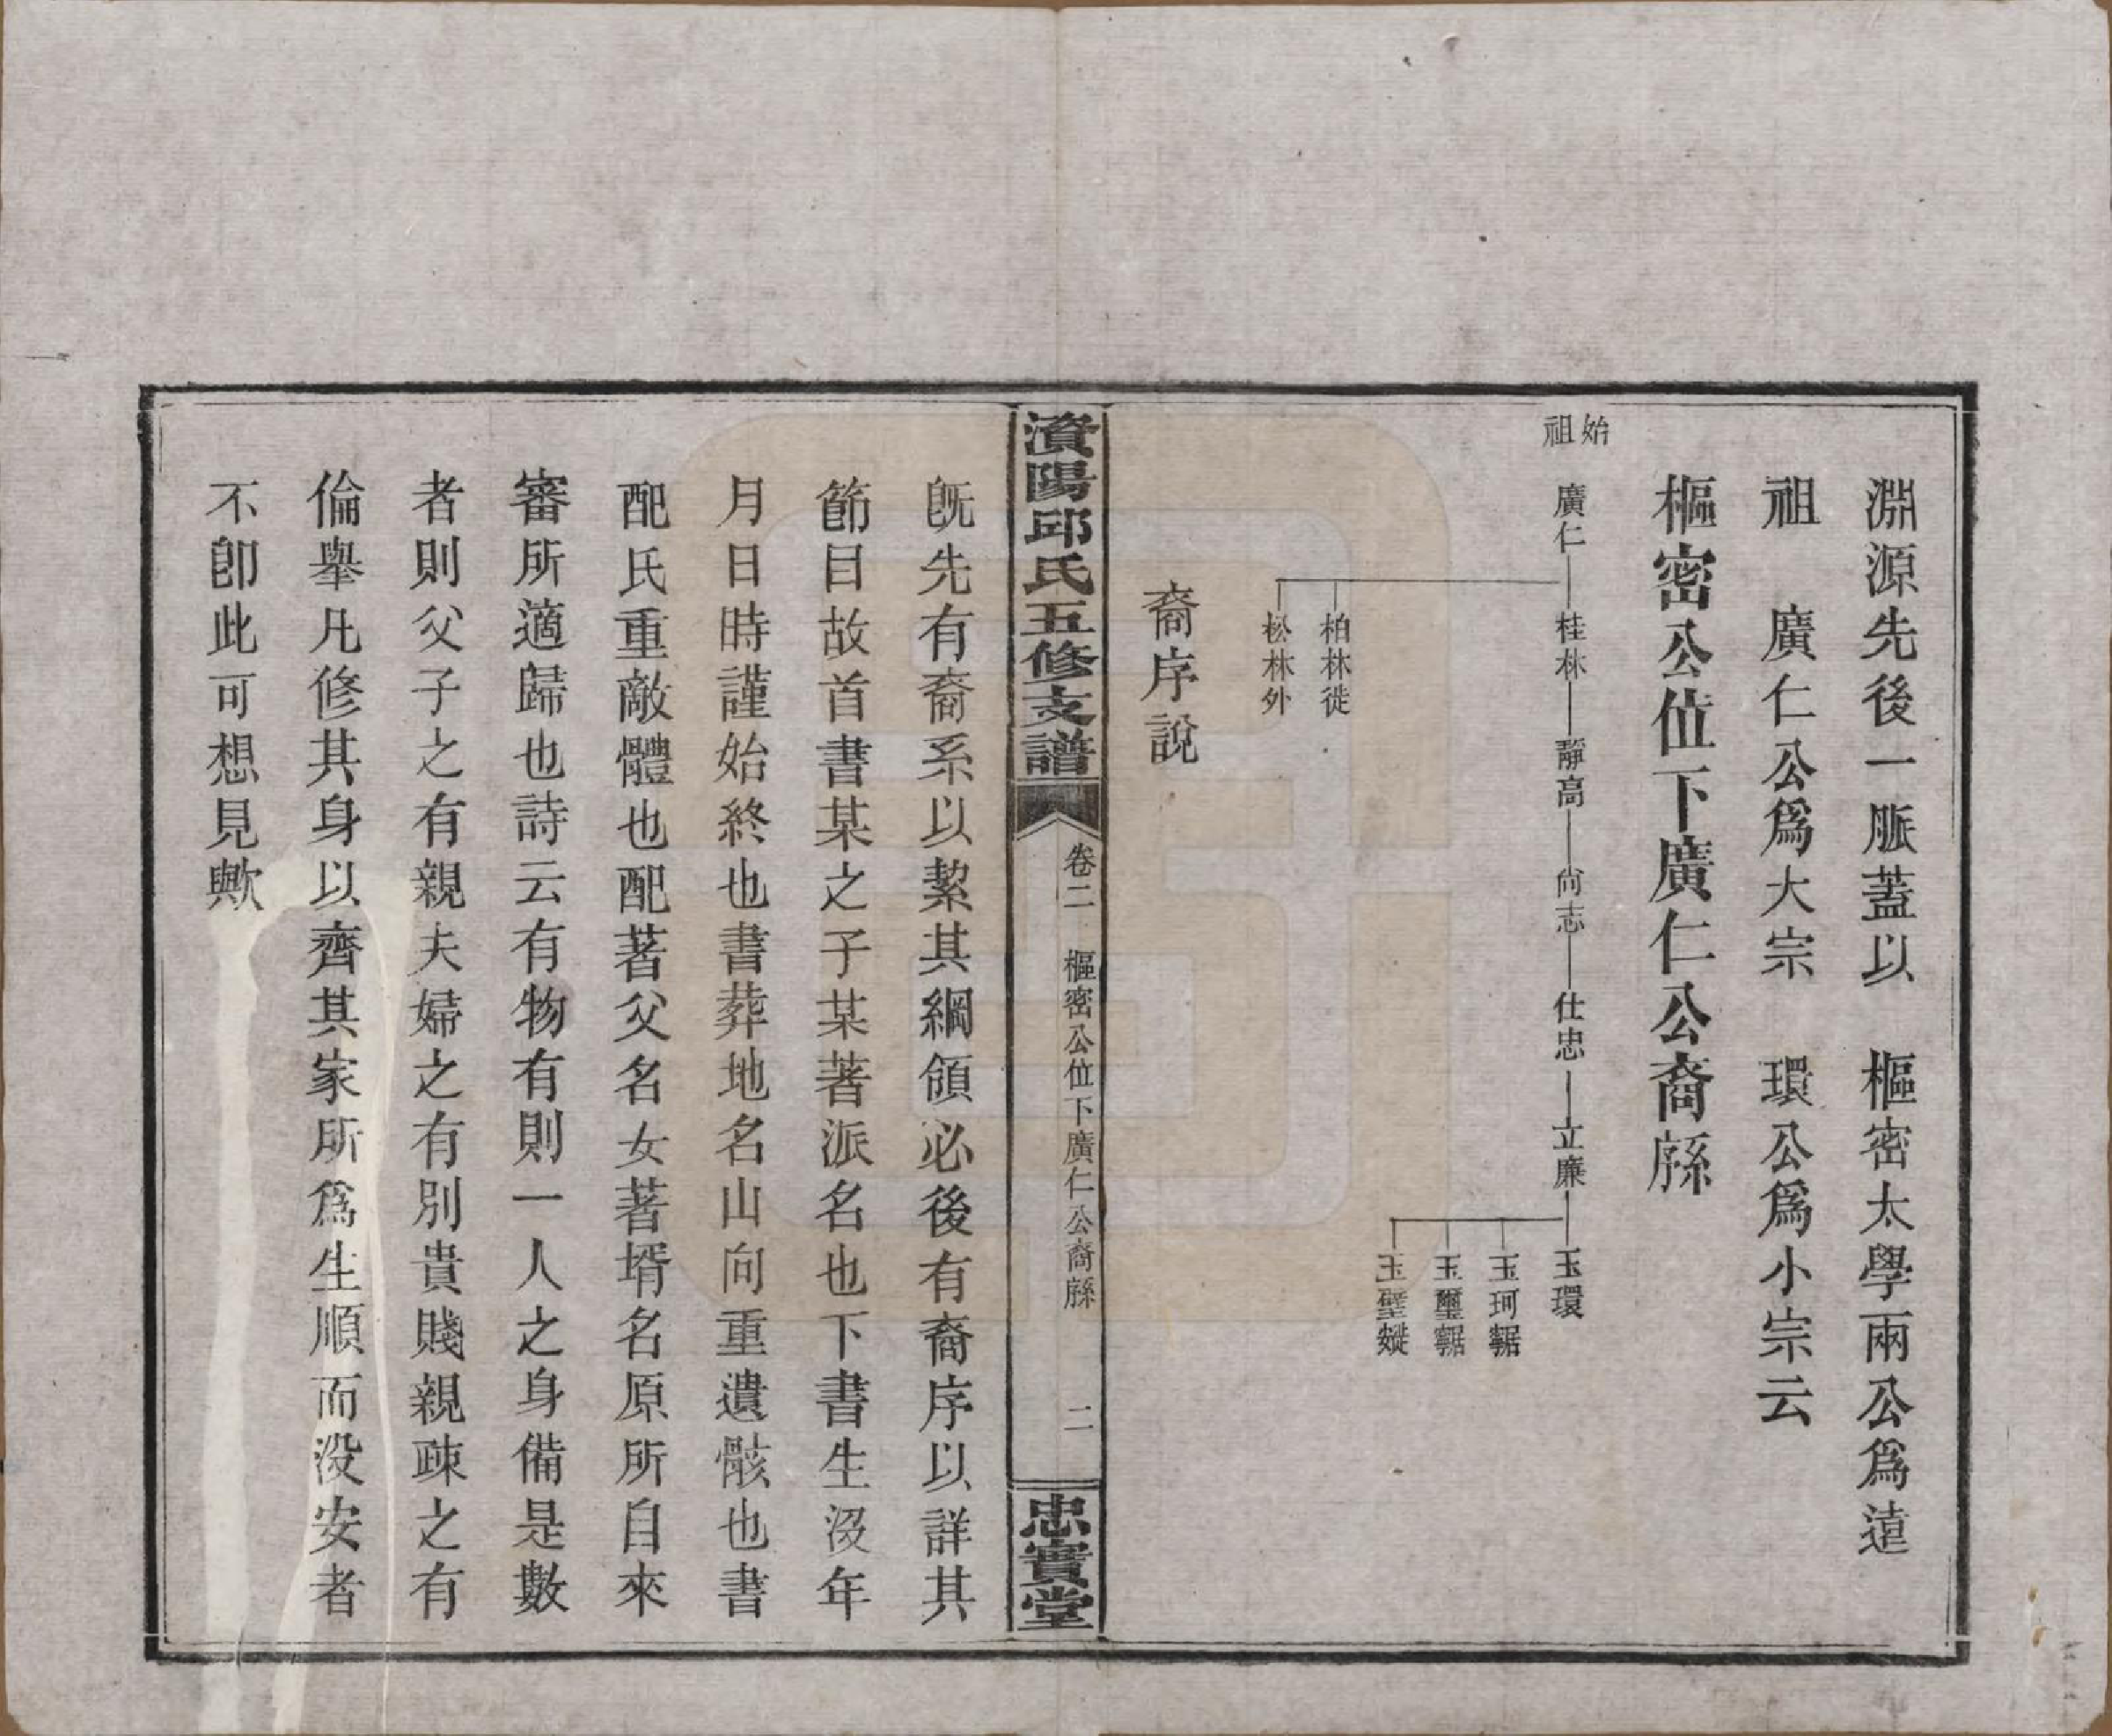 淵源先後一脈蓋以　樞密太學兩公爲遠
祖　廣仁公爲大宗　環公爲小宗云
樞密公位下廣仁公裔䋣
始祖
廣仁—桂林—靜高—尙志—仕忠—立廉—玉環
玉珂
玉璽
玉璧
柏林徙
松林外
裔序說
資陽邱氏五修支譜
卷二　樞密公位下廣仁公裔䋣　二
忠實堂
旣先有裔系以絜其綱領必後有裔序以詳其
節目故首書某之子某著派名也下書生沒年
月日時謹始終也書葬地名山向重遺骸也書
配氏重敵體也配著父名女著壻名原所自來
審所適歸也詩云有物有則一人之身備是數
者則父子之有親夫婦之有別貴賤親疎之有
倫舉凡修其身以齊其家所爲生順而没安者
不卽此可想見歟